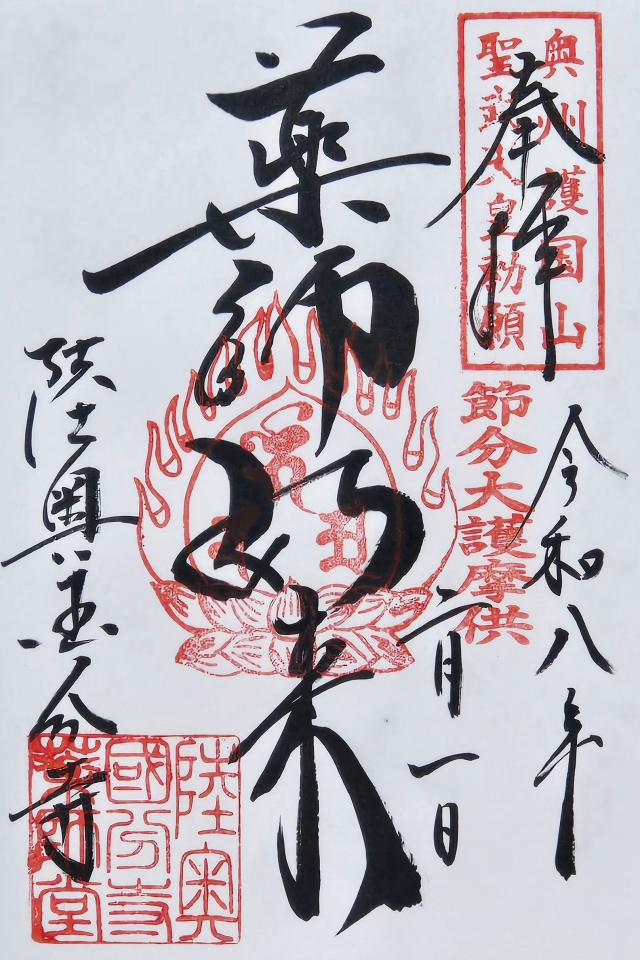 奉拝
奥州護国山
聖武天皇勅願
節分大護摩供
令和八年
二月一日
薬師如来
陸奥国分寺
陸奥
國分寺
薬師堂